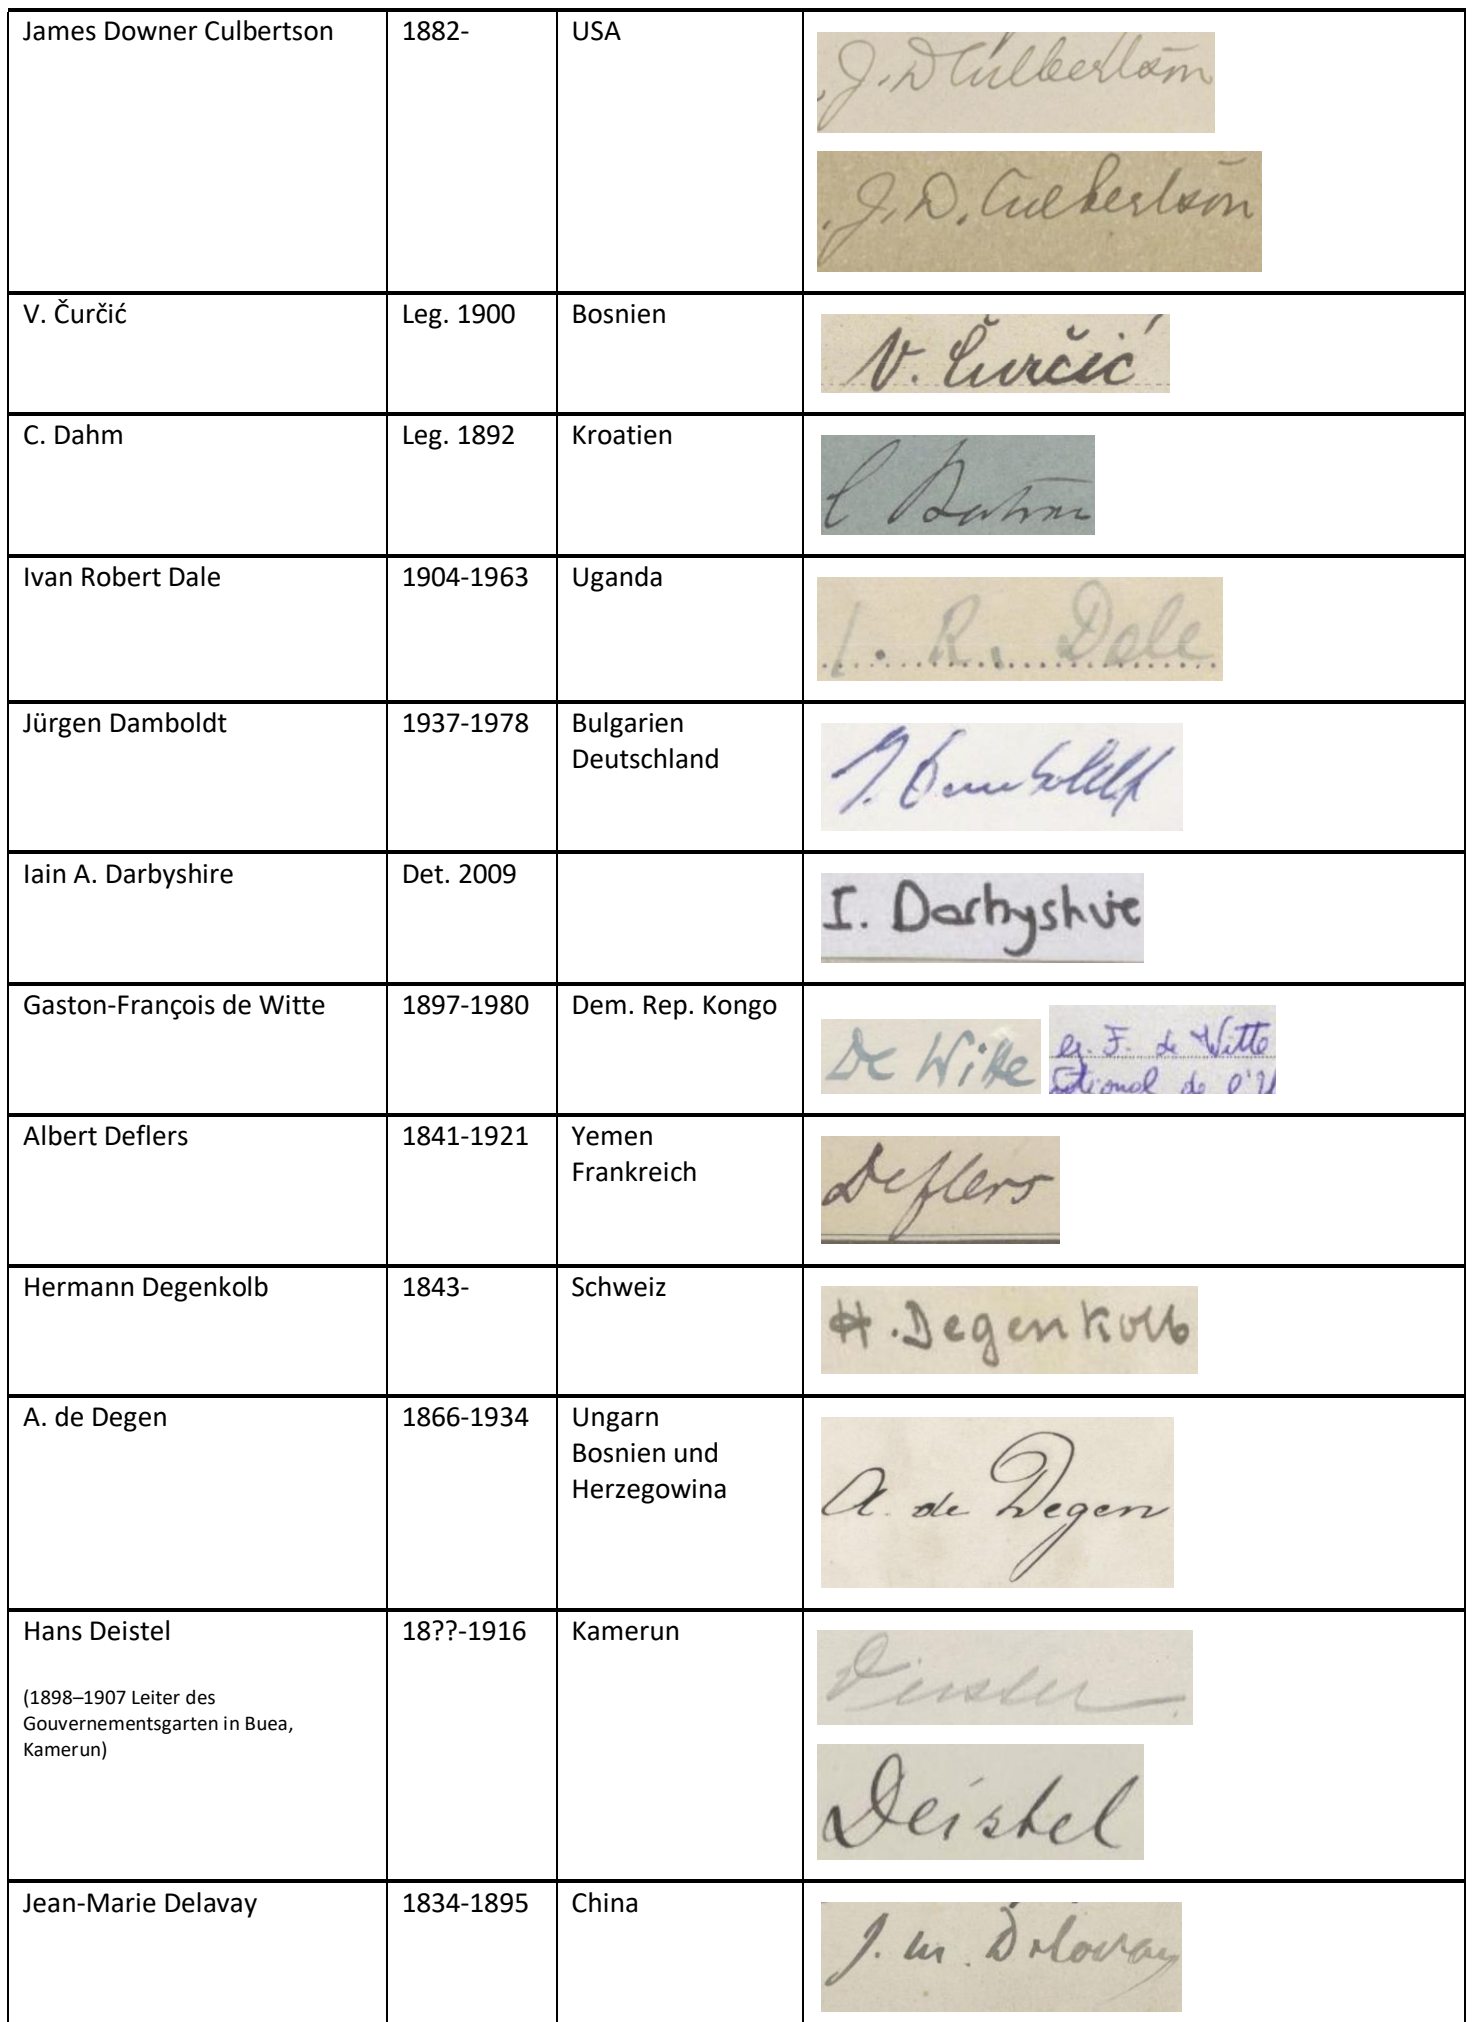 James Downer Culbertson 1882- USA
J. D Culbertson
J. D. Culbertson
V. Čurčić Leg. 1900 Bosnien
V. Čurčić
C. Dahm Leg. 1892 Kroatien
C Dahm
Ivan Robert Dale 1904-1963 Uganda
I. R. Dale
Jürgen Damboldt 1937-1978 Bulgarien
Deutschland
J. Damboldt
Iain A. Darbyshire Det. 2009
I. Darbyshire
Gaston-François de Witte 1897-1980 Dem. Rep. Kongo
De Witte
G. F. de Witte
de l'U
Albert Deflers 1841-1921 Yemen
Frankreich
Deflers
Hermann Degenkolb 1843- Schweiz
H. Degenkolb
A. de Degen 1866-1934 Ungarn
Bosnien und
Herzegowina
A. de Degen
Hans Deistel 18??-1916 Kamerun
(1898–1907 Leiter des
Gouvernementsgarten in Buea,
Kamerun)
Deistel
Jean-Marie Delavay 1834-1895 China
J. m. Delavay